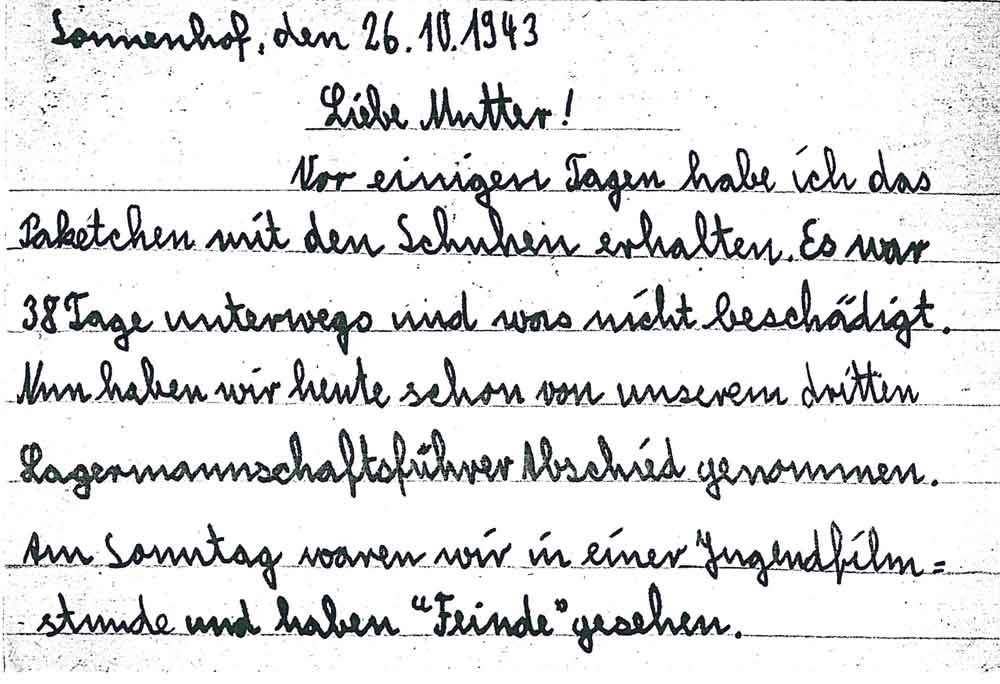 Sonnenhof, den 26.10.1943
Liebe Mutter!
Vor einigen Tagen habe ich das
Paketchen mit den Schuhen erhalten. Es war
38 Tage unterwegs und war nicht beschädigt.
Nun haben wir heute schon von unserem dritten
Lagermannschaftsführer Abschied genommen.
Am Sonntag waren wir in einer Jugendfilm=
stunde und haben “Feinde” gesehen.